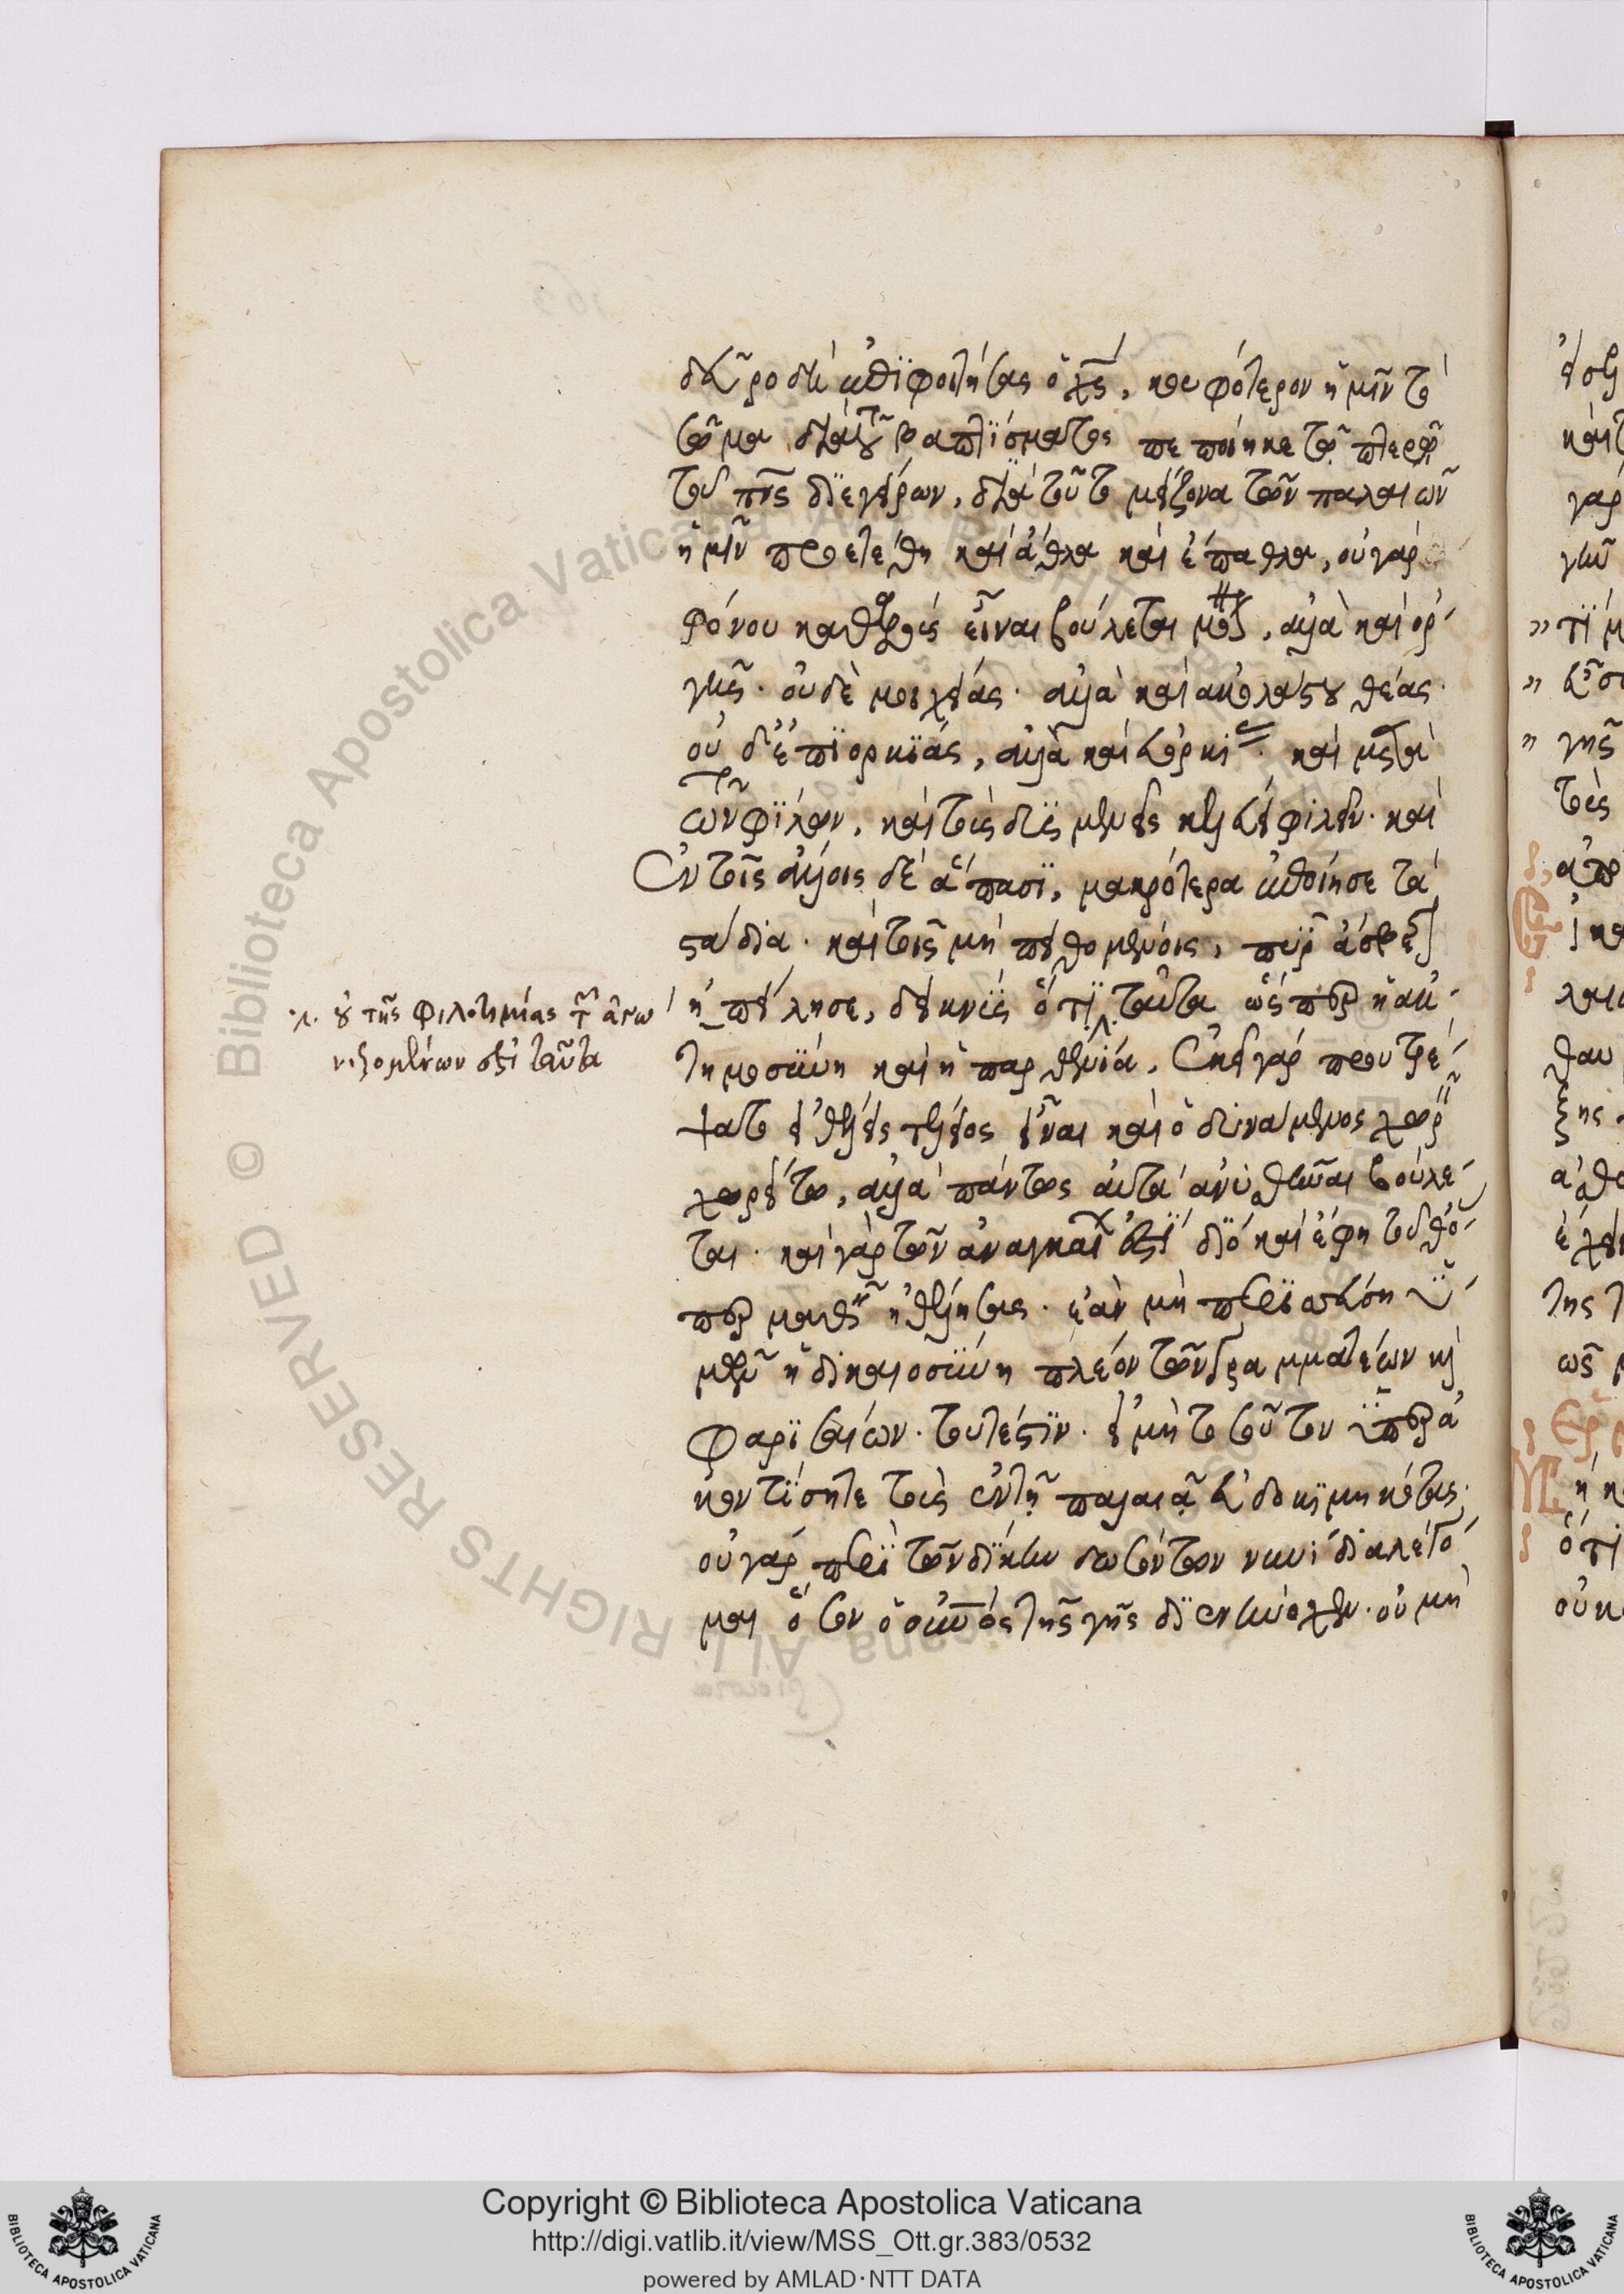 δεῦρο δὲ ἐπιφοιτήσας ὁ χς, κουφότερον ἡμῖν τὸ
σῶμα διὰ τοῦ βαπτίσματος πεποίηκε τῷ πτερῷ
τοῦ πνς διεγείρων, διὰ τοῦτο μείζονα τῶν παλαιῶν
ἡμῖν προετέθη καὶ ἆθλα καὶ ἔπαθλα, οὐ γὰρ
φόνου καθαροὺς εἶναι βούλεται μόνον, ἀλλὰ καὶ ὀρ
γῆς. οὐδὲ μοιχείας. ἀλλὰ καὶ ἀκολάστου θέας.
οὐδ' ἐπιορκίας, ἀλλὰ καὶ εὐορκίας. καὶ μετὰ
τῶν φίλων, καὶ τοὺς δυσμενεῖς κελεύει φιλεῖν. καὶ
ἐν τοῖς ἄλλοις δὲ ἅπασι, μακρότερα ἐποίησε τὰ
στάδια. καὶ τοῖς μὴ πειθομένοις, πῦρ ἄσβεστον
ἠπείλησε, δεικνὺς ὅτι ταῦτα ὥσπερ ἡ ἀκ
τημοσύνη καὶ ἡ παρθενία. ἐκεῖ γὰρ προυτρέ
ψατο εἰ θέλεις τέλειος εἶναι καὶ ὁ δυνάμενος χωρεῖν
χωρείτω, ἀλλὰ πάντως αὐτὰ ἀνυσθῆναι βούλε
ται. καὶ γὰρ τῶν ἀναγκαίων ἐστί διὸ καὶ ἔφη τοῦθ' ὅ
περ μαθεῖν ἠθέλησας. ἐὰν μὴ περισσεύσῃ ὑ
μῶν ἡ δικαιοσύνη πλέον τῶν γραμματέων καὶ
φαρισαίων. τουτέστιν. εἰ μὴ τοσοῦτον ὑπερα
κοντίσητε τοὺς ἐν τῇ παλαιᾷ εὐδοκιμηκότας.
οὐ γὰρ περὶ τῶν δίκην δωσόντων νυνὶ διαλέγο
μαι ὅσον ὁ σκοπὸς τῆς γῆς διενήνοχεν. οὐ μὴ
λ. οὐ τῆς φιλοτιμίας τῶν ἀγω
νιζομένων ἐστὶ ταῦτα
Copyright © Biblioteca Apostolica Vaticana
http://digi.vatlib.it/view/MSS_Ott.gr.383/0532
powered by AMLAD·NTT DATA